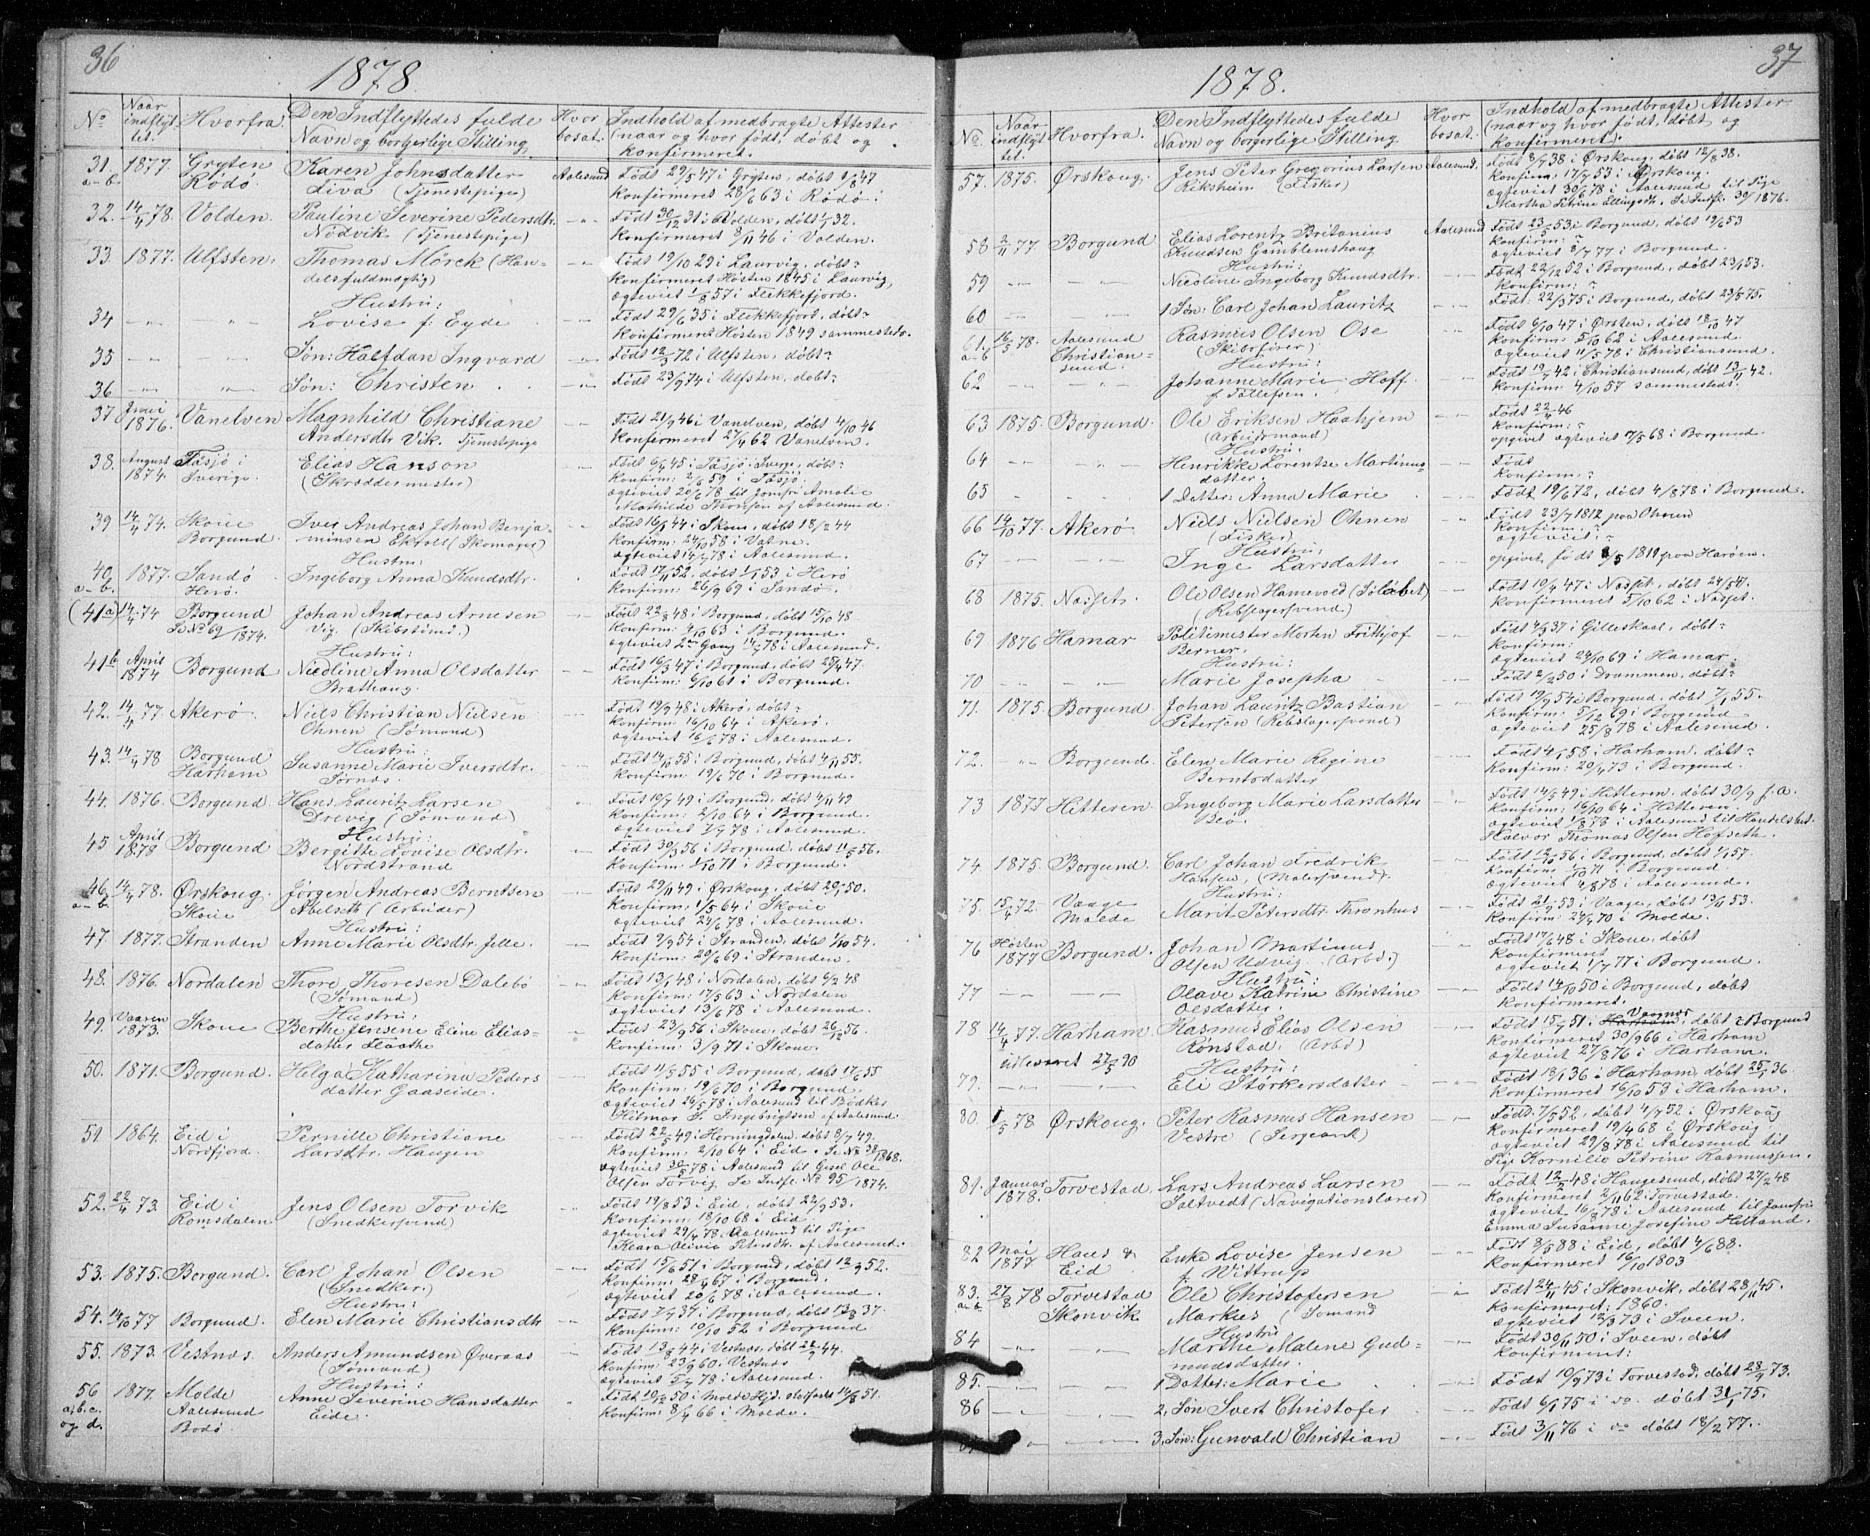 36
1878
No
Naar indflyttet.
Hvorfra.
Den Indflyttedes fulde Navn og borgerlige Stilling.
Hvor bosat.
Indhold af medbragte Attester (naar og hvor født, døbt og konfirmeret.
31. a-b. 1877. Gryten Rödö. Karen Johnsdatter Aalesund Født 29/5 47 i Gryten, døbt 1/8 47
Liva (Tjenestepige) Konfirmeret 28/6 63 i Rödö.
32. 14/4 78. Volden. Pauline Severine Pedersdtr. -"- Født 30/12 31 i Volden, døbt 1/1 32.
Nodvik (Tjenestepige) Konfirmeret 8/11 46 i Volden.
33. 1877. Ulfsten. Thomas Mörck (Han- -"- Født 19/10 29 i Laurvig, døbt
delsfuldmægtig) Konfirmeret Høsten 1845 i Laurvig,
Hustru: ægteviet 1/8 57 i Flekkefjord.
34 -"- -"- Lovise f: Eyde -"- Født 29/6 35 i Flekkefjort, døbt
Konfirmeret Høsten 1849 sammesteds.
35 -"- -"- Søn: Halfdan Ingvard -"- Født 12/3 72 i Ulfsten, døbt
36 -"- -"- Søn: Christen -"- Født 23/9 74 i Ulfsten, døbt
37 Juni 1876. Vanelven Magnhild Christiane -"- Født 21/9 46 i Vandven, døbt 4/10 46
Andersdtr Vik. Tjenestepige Konfirmeret 27/4 62 Vanelven.
38. August 1874. Tåsjø i Sverige. Elias Hanson -"- Født 6/4 45 i Tåsjø Sverge, døbt
(Skræddermester) Konfirm: 2/6 59 i Tåsjø.
ægteviet 20/6 78 til Jomfru Amalie
Mathilde Thonsen af Aalesund.
39 14/4 74. Skoue Borgund. Iver Andreas Johan Benja- -"- Født 16/1 44 i Skoue, døbt 18/2 44
minsen Ektoll (Skomager) Konfirm: 24/10 58 i Vatne.
Hustru: ægteviet 14/7 78 i Aalesund.
40 a-b. 1877. Sandö Herö. Ingeborg Anna Knudsdtr. Født 17/11 52, døbt 1/1 53 i Herö
Konfirm: 26/9 69 i Sandö.
(41a) 14/4 74 Borgund Johan Andreas Arnesen -"- Født 22/8 48 i Borgund, døbt 15/10 48
S. No 69/1874. Vig. (Skibstömr.) Konfirm: 4/10 63 i Borgund.
Hustru: ægteviet 2den Gang 14/7 78 i Aalesund.
41b April 1874 Borgund Nicoline Anna Olsdatter -"- Født 16/3 47 i Borgund, døbt 27/4 47.
Brathaug. Konfirm: 6/10 61 i Borgund.
42. 14/4 77. Akerö. Niels Christian Nielsen -"- Født 19/9 48 i Akerö, døbt
Ohnen (Sömand) Konfirm: 16/10 64 i Akerö.
Hustru: ægteviet 16/6 78 i Aalesund.
43. 14/4 78 Borgund Harham Susanne Marie Iversdtr. -"- Født 14/10 55 i Borgund, døbt 4/11 55.
Sörnes. Konfirm: 19/6 70 i Borgund.
44. 1876. Borgund. Hans Lauritz Larsen -"- Født 19/7 49 i Borgund, døbt 4/11 49
Drevig (Sömand) Konfirm: 2/10 64 i Borgund.
Hustru: ægteviet 7/7 78 i Aalesund.
45 April 1878 Borgund Bergitte Lovise Olsdtr. -"- Født 30/3 56 i Borgund, døbt 11/5 56.
Nordstrand Konfirm: 1/10 71 i Borgund.
46 a-b. 14/4 78. Ørskoug. Skoue Jörgen Andreas Berntsen -"- Født 29/11 49 i Ørskoug, døbt 20/1 50.
Abelseth (Arbeider) Konfirm: 1/5 64 i Skoue
Hustru: ægteviet 24/6 78 i Aalesund.
47. 1877. Stranden Anne Marie Olsdtr. Jelle. -"- Født 9/9 54 i Stranden, døbt 1/10 54.
Konfirm: 29/6 69 i Stranden.
48. 1876. Nordalen Thore Thoresen Dalebö -"- Født 13/1 48 i Nordalen, døbt 6/2 48
(Sömand) Konfirm: 17/5 63 i Nordalen
Hustru: ægteviet 13/6 78 i Aalesund.
49. Vaaren 1873. Skoue Berthe Jensene Eline Elias- -"- Født 23/9 56 i Skoue, døbt 26/12 56.
datter Haathe Konfirm: 3/9 71 i Skoue.
50. 1871. Borgund. Helga Katharina Peders -"- Født 11/5 55 i Borgund, døbt 17/6 55
datter Gaaseide. Konfirm: 19/6 70 i Borgund.
ægteviet 26/5 78 i Aalesund til Bödker
Hilmar S. Ingebrigtsen af Aalesund.
51 1864. Eid i Nordfjord. Pernille Christiane -"- Født 22/5 49 i Horningdalen, døbt 8/7 49.
Larsdtr. Haugen Konfirm: 2/10 64 i Eid. Se No 38/1868.
ægteviet 30/5 78 i Aalesund til Gesel Ole
Olsen Torvig. Se Indfl. No 95/1874.
52. 22/4 73. Eid i Romsdalen Jens Olsen Torvik Født 19/8 53 i Eid, døbt 22/9 53.
(Snedkersvend) Konfirm: 18/10 68 i Eid.
ægteviet 29/4 78 i Aalesund til Pige
Klara Olivia Petersdtr. af Aalesund.
53. 1875. Borgund. Carl Johan Olsen -"- Født 15/6 51 i Borgund, døbt 12/9 52.
(Snedker.) Konfirm: 28/4 67 i Borgund.
Hustru: ægteviet 20/6 78 i Aalesund.
54. 14/10 77 Borgund. Elen Marie Christiansdtr -"- Født 7/7 37 i Borgund, døbt 13/8 37.
Konfirm: 10/10 52 i Borgund
55. 1873. Vestnæs. Anders Amundsen Øveraas -"- Født 13/8 44 i Vestnes, døbt 22/9 44.
(Sömand) Konfirm: 23/9 60 i Vestnæs
Hustru: ægteviet 5/7 78 i Aalesund.
56 a, b. c. og d. 1877. Molde Aalesund Bodö. Anne Severine Hansdatter Født 19/12 50 i Molde Hjd. stadfæstet 14/8 51.
Eide. Konfirm: 8/4 66 i Molde.
37
1878.
No.
Naar indflyttet.
Hvorfra.
Den Indflyttedes fulde Navn og borgerlige Stilling.
Hvor bosat.
Indhold af medbragte Attester (naar og hvor født, døbt og Konfirmeret.)
57. 1875. Ørskoug. Jens Peter Gregorius Larsen Aalesund. Født 8/7 38 i Ørskoug, døbt 12/8 38.
Riksheim (Fisker) Konfirm. 17/7 53 i Ørskoug.
ægteviet 30/6 78 i Aalesund til Pige
Martha Petrine Ellingsdtr. Se Indfl. 39/1876.
58 2/11 77 Borgund Elias Lorentz Britanius Aalesund Født 23/5 53 i Borgund, døbt 19/6 53
Knudsen Gamblemshaug Konfirm:
Hustru: ægteviet 8/7 77 i Borgund.
59 -"- -"- Nicoline Ingeborg Knudsdtr. -"- Født 22/12 52 i Borgund, døbt 23/1 53.
Konfirm:
60 -"- -"- 1 Søn: Carl Johan Lauritz -"- Født: 22/3 75 i Borgund, døbt 23/5 75.
61. a-b 16/5 78. Aalesund Christian- sund. Rasmus Olsen Ose -"- Født 6/10 47 i Ørsten, døbt 18/10 47
(Skibsfører) Konfirm: 5/10 62 i Aalesund.
Hustru: ægteviet 11/5 78 i Christiansund.
62 -"- Johanne Marie Hoff -"- Født 19/7 42 i Christiansund, døbt 13/11 42.
f. Tollefsen. Konfirm 4/10 57 sammesteds.
63 1875. Borgund. Ole Eriksen Haahjem -"- Født 22/4 46
(Arbeidsmand) Konfirm:
Hustru: opgivet ægteviet 17/5 68 i Borgund.
64 -"- -"- Henrikke Lorentse Martinus- Født
datter. Konfirm:
65 1 Datter: Anna Marie Født 19/6 72, døbt 4/8 78 i Borgund.
66 14/10 77. Akerö Niels Nielsen Ohnen -"- Født 23/7 1812 paa Ohnen
(Fisker) Konfirm:
Hustru: ægteviet:
67 -"- Inge Larsdatter opgivet, født 8/5 1819 paa Haröen.
68 1875. Nasset. Ole Olsen Hamevold (Söløbet) -"- Født 19/4 47 i Nasset, døbt 24/5 47.
(Rebslagersvend) Konfirmeret 5/10 62 i Nasset.
69 1876 Hamar Politimester Morten Frithjof -"- Født 4/9 37 i Gilleskaal, døbt
Berner. Konfirm:
Hustru: ægteviet 24/10 69 i Hamar.
70 -"- -"- Marie Josepha -"- Født 2/2 50 i Drammen, døbt
71. 1875. Borgund. Johan Lauritz Bastian -"- Født 19/9 54 i Borgund, døbt 7/1 55.
Petersen (Rebslagersvend) Konfirm: 5/12 69 i Borgund
ægteviet 25/8 78 i Aalesund.
72. -"- Borgund. Elen Marie Regine -"- Født 4/1 58 i Harham, døbt
Berntsdatter Konfirm: 20/4 73 i Borgund.
73 1877 Hitteren. Ingeborg Marie Larsdatter -"- Født 14/5 49 i Hitteren, døbt 30/9 s. a.
Beö. Konfirm: 16/10 64 i Hitteren.
ægteviet 1/8 78 i Aalesund til Handelsbet.
Halvor Thomas Olsen Hofseth.
74. 1875. Borgund. Carl Johan Fredrik -"- Født 12/10 56 i Borgund, døbt 1/1 57.
Hansen, (Malersvend). Konfirm: 1/10 71 i Borgund
Hustru: ægteviet 4/8 78 i Aalesund.
75. 15/4 72. Vaage Molde Marit Petersdtr. Thronhus -"- Født 21/9 53 i Vaage, døbt 13/11 53.
Konfirm: 24/4 70 i Molde.
76 Høsten 1877 Borgund. Johan Martinus -"- Født 17/6 48 i Skoue, døbt
Olsen Udvig. (Arbd.) Konfirmeret
Hustru: ægteviet 1/7 77 i Borgund.
77 -"- -"- Olave Katrine Christine -"- Født 14/10 50 i Borgund, døbt
Olsdatter Konfirmeret.
78 14/4 77. Harham. Rasmus Elias Olsen -"- Født 15/7 51. Harham, døbt Borgund
Rönstad. (Arbd) Konfirmeret 30/9 66 i Harham
Hustru: ægteviet 27/8 76 i Harham.
79. -"- -"- Eli Störkersdatter -"- Født 18/1 36 i Harham, døbt 25/1 36.
Konfirmeret 16/10 53 i Harham.
80. 1/5 78 Ørskoug. Peter Rasmus Hansen -"- Född. 7/5 52, døbt 4/7 52 i Ørskoug
Vestre (Sergeant) Konfirmeret 19/4 68 i Ørskoug
ægteviet 29/8 78 i Aalesund til
Pige Kornilie Petrine Rasmussen.
81. Januar 1878. Torvestad. Lars Andreas Larsen -"- Født 12/2 48 i Haugesund, døbt 27/2 48
Saltvedt (Navigationslærer) Konfirmeret 2/11 62 i Torvestad.
ægteviet 16/8 78 i Aalesund til Jomfru
Emma Susanne Josefine Hitland.
82 Mai 1877 Haus & Eid Enke Lovise Jensen -"- Født 8/5 88 i Eid, døbt 4/6 88.
f. Wittrup Konfirmeret 16/10 1803
83. a-b. 27/8 78 Torvestad Skonvik Ole Christofersen Født 24/11 45 i Skonvik, døbt 28/11 45.
Markus (Sömand Konfirmeret: 1860.
Hustru ægteviet 12/3 73 i Sveen.
84 -"- -"- Marthe Malene Gud- -"- Født 30/11 50 i Sveen, døbt
mundsdatter. Konfirmeret:
85. -"- -"- 1 Datter: Marie -"- Født 10/9 73 i Torvestad, døbt 28/9 73.
86 -"- -"- 2, Søn Svert Christofer -"- Født 6/1 75 i do. døbt 31/1 75.
-"- -"- 3, Søn: Gunvald Christian -"- Født 3/11 76 i do døbt 18/2 77.